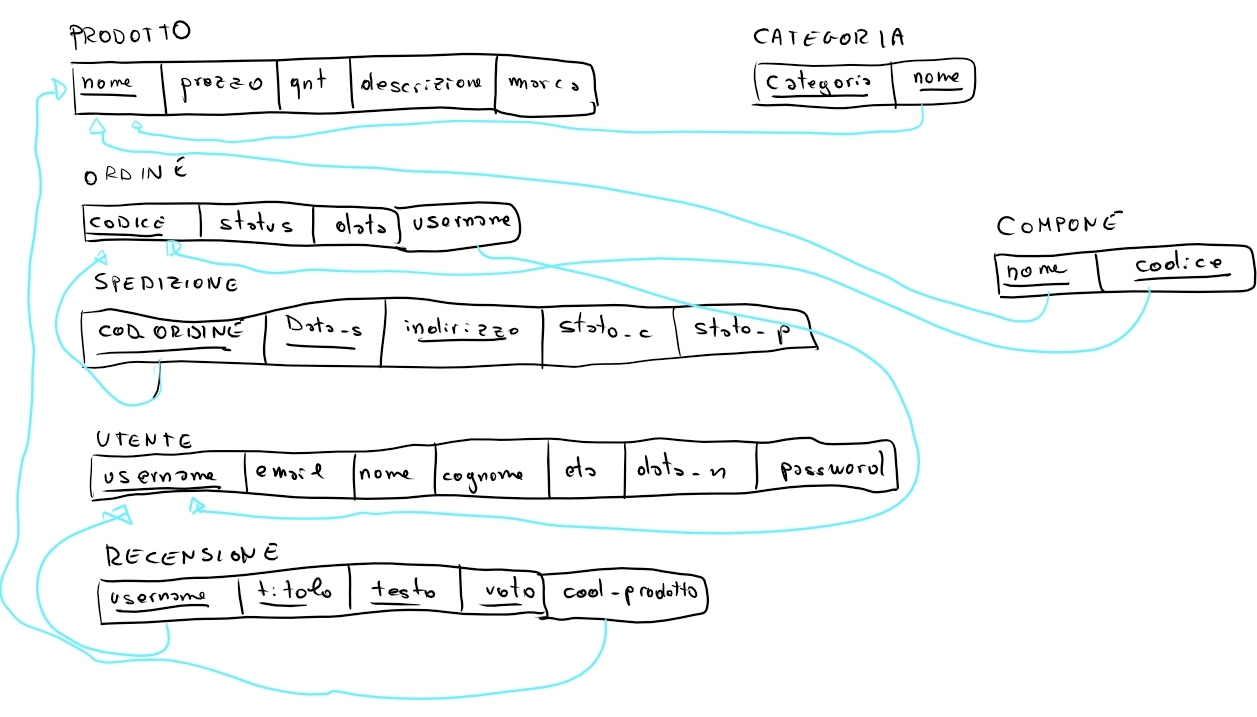 PRODOTTO
nome prezzo qnt descrizione marca
CATEGORIA
Categoria nome
ORDINE
CODICE status data username
COMPONE
nome codice
SPEDIZIONE
COD ORDINE Data_s indirizzo stato_c stato_p
UTENTE
username email nome cognome eta data_n password
RECENSIONE
username titolo testo voto cod-prodotto